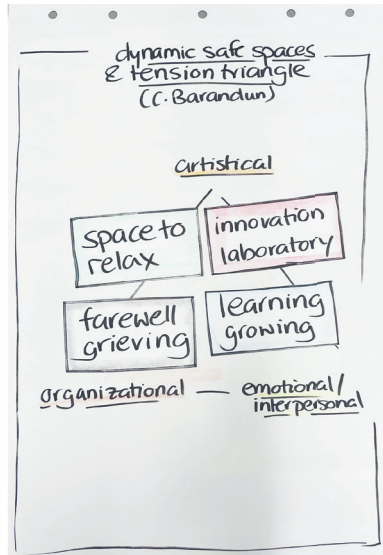 dynamic safe spaces
& tension triangle
(C. Barandun)
artistical
space to
relax
innovation
laboratory
farewell
grieving
learning
growing
organizational — emotional/
interpersonal